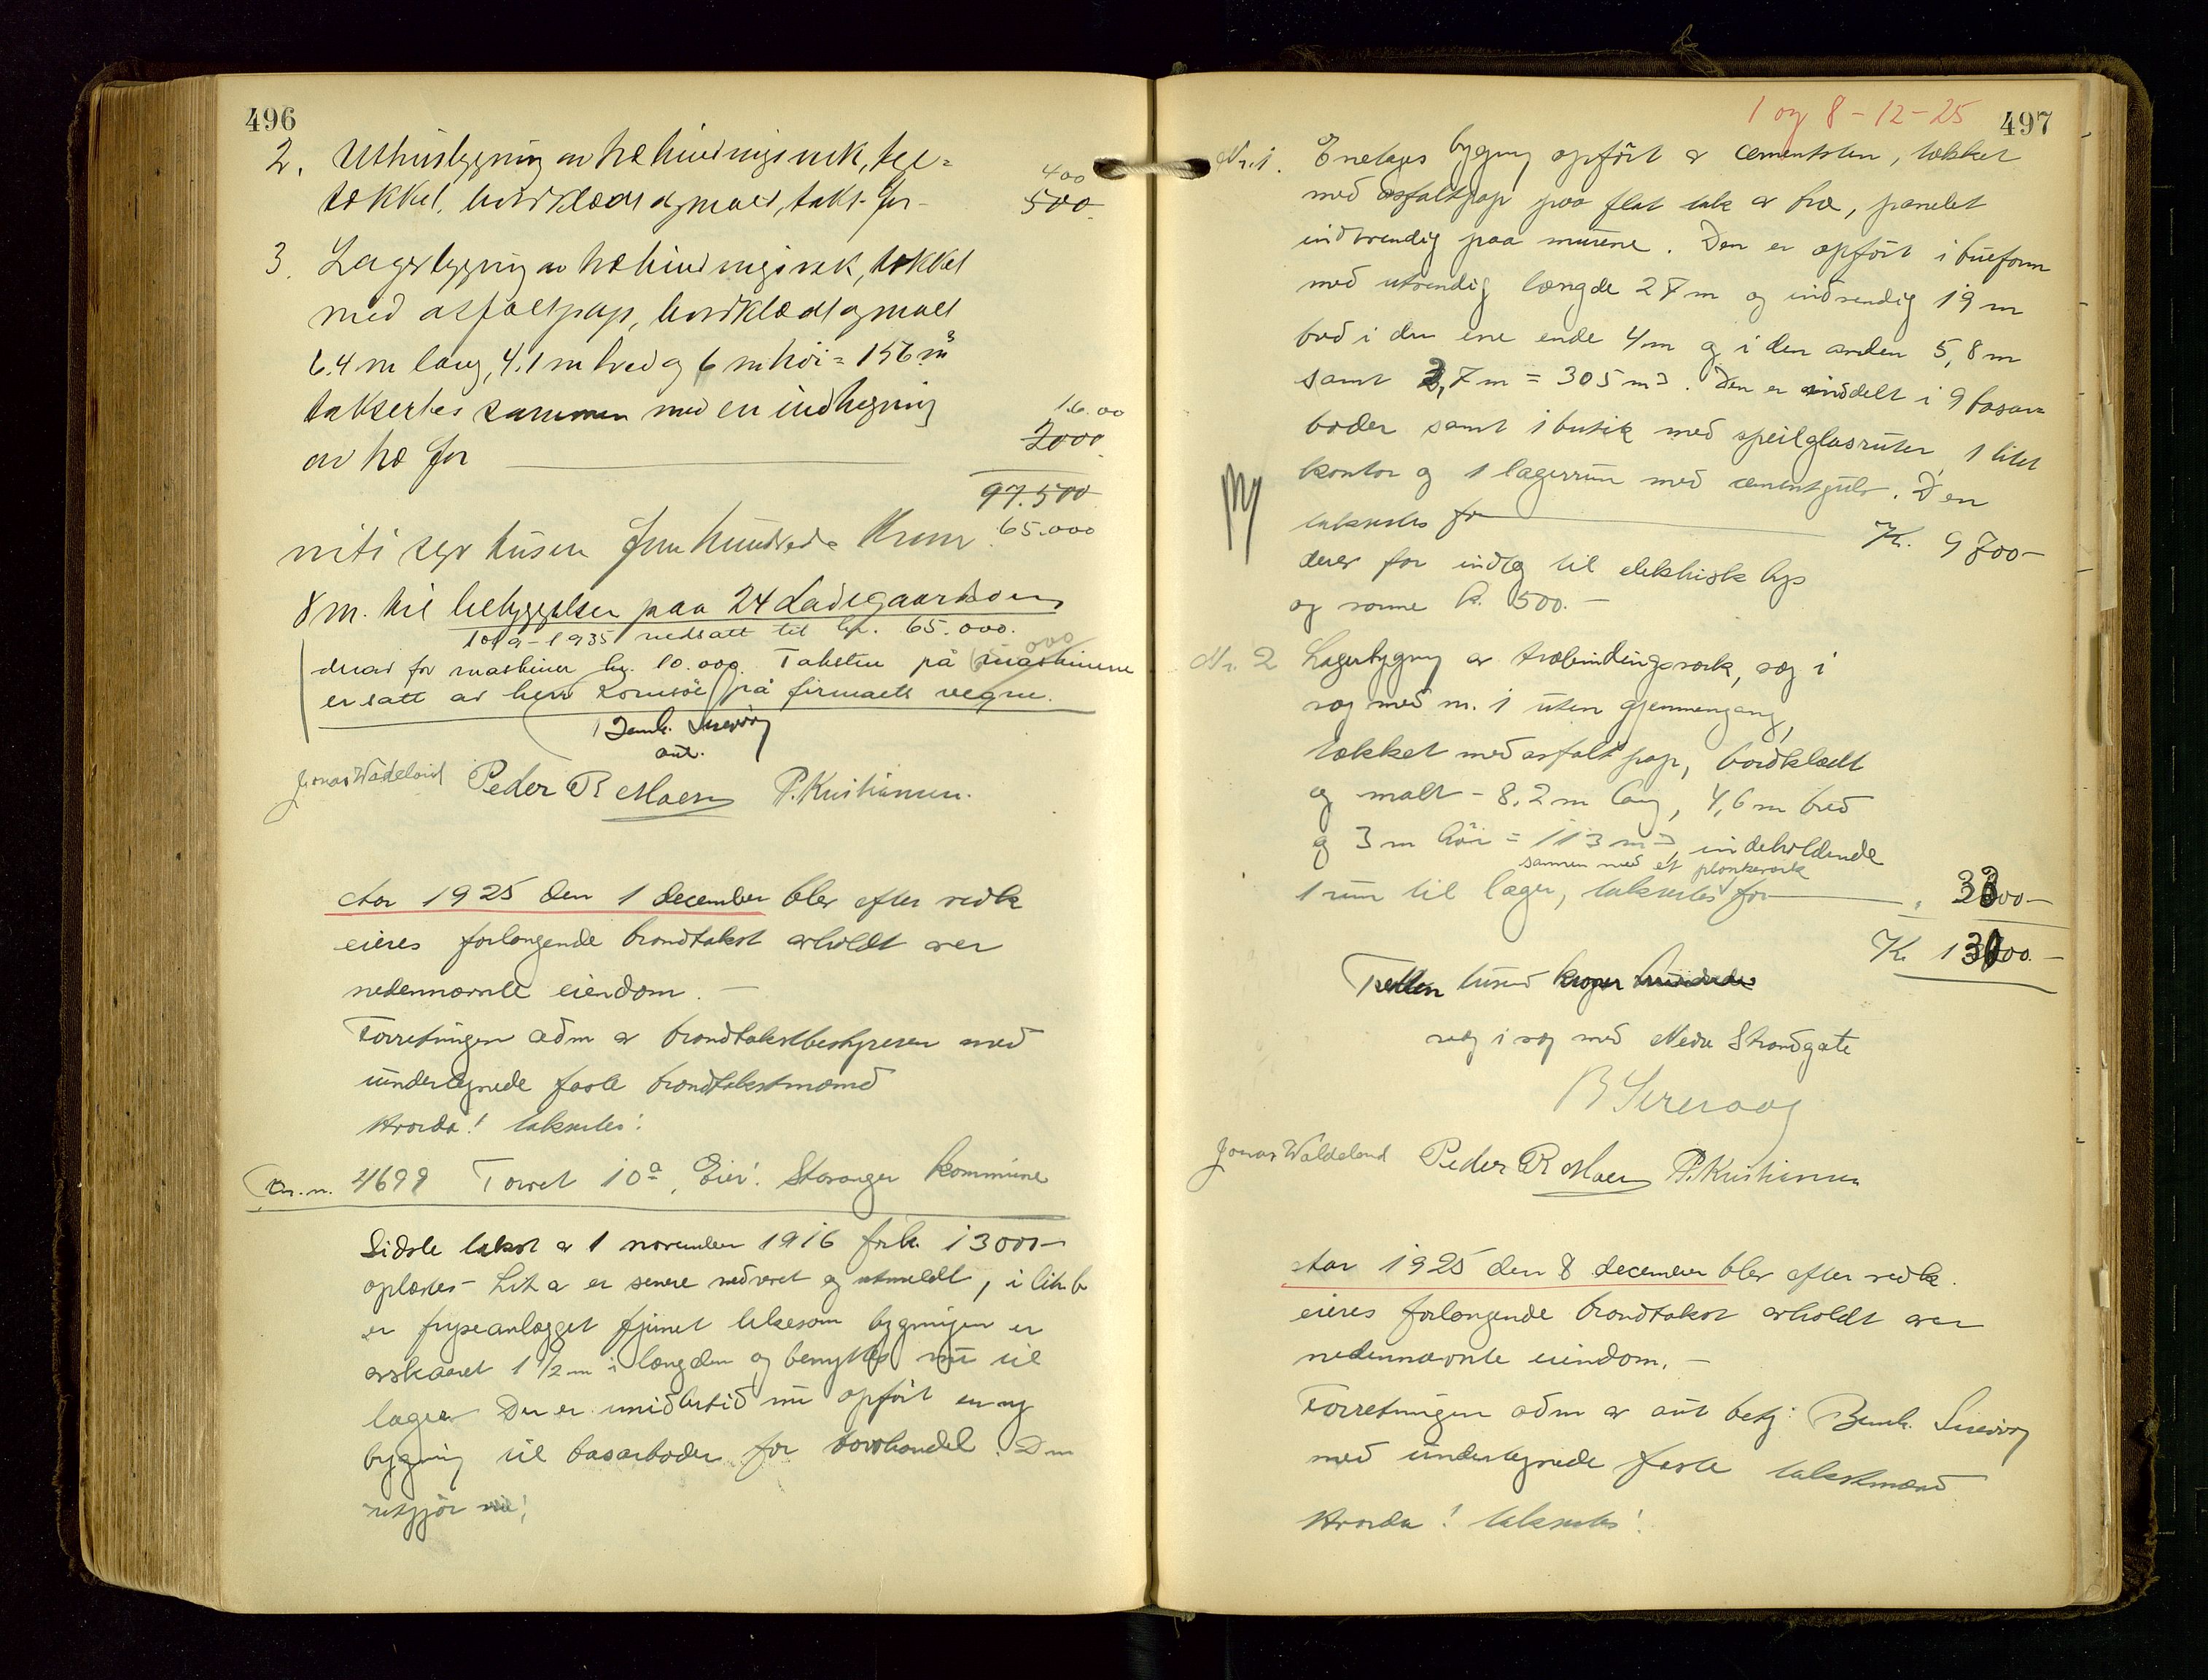 496
2. Uthusbygning av træbindingsverk, tegl=
tækket, bordklædt og malt, takst. for -
400
500.
3. Lagerbygning av træbindingsverk, tækket
med asfaltpap, bordklædt og malt
6.4 m lang, 4.1 m bred og 6 m høi = 156 m³
takseres sammen med en indhegning
av træ for
16.00
2000.
97.500
65.000
niti syv tusen fem hundrede Kroner
8 m. til bebyggelsen paa 24 Ladegaardsvei
10/9-1935 nedsatt til kr. 65.000.
derav for maskiner kr. 10.000. Taksten på maskinene
er satt av herr Kornsöe på firmaets vegne.
Bernh. Sirevåg
aut.
Jonas Wadeland Peder R Moen P. Kristiansen.
Aar 1925 den 1 december blev efter vedk
eieres forlangende brandtakst avholdt over
nedennævnte eiendom. -
Forretningen adm av brandtakstbestyreren med
undertegnede faste brandtakstmænd
Hvorda! takseres!
Br. n. 4699 Torvet 10a, Eier! Stavanger kommune
Sidste takst av 1 november 1916 for kr. 13000-
oplæstes - Lit a er senere nedrevet og utmeldt, i lit b
er fryseanlægget fjernet likesom bygningen er
avskaaret 1 1/2 m i længden og benyttes nu til
lager. Der er imidlertid nu opført en ny
bygning til basarboder for torvhandel. Den
utgjør nu!
1 og 8-12-25
497
Nr. 1. Enetages bygning opført av cementsten, tækket
med asfaltpap paa flat tak av træ, panelet
indvendig paa murene. Den er opført i bueform
med utvendig længde 27 m og indvendig 19 m
bred i den ene ende 4 m og i den anden 5,8 m
samt 2,7 m = 305 m3. Den er inddelt i 9 basar-
boder samt 1 butik med speilglasruter 1 litet
kontor og 1 lagerrum med cementgulv. Den
takseres for Kr. 9700-
Ny
derav for indlæg til elektrisk lys
og varme kr. 500.-
Nr. 2 Lagerbygning av træbindingsverk, væg i
væg med nr. 1 uten gjennemgang,
tækket med asfaltpap, bordklædt
og malt - 8,2 m lang, 4,6 m bred
og 3 m høi = 113 m3, indeholdende
sammen med et plankeverk
1 rum til lager, takseres for " 3300-
Kr 13000.-
Tretten tusend kroner hundrede
væg i væg med Nedre Strandgate
B Sirevaag
Jonas Waldeland Peder R Moen P. Kristiansen
Aar 1925 den 8 december blev efter vedk.
eieres forlangende brandtakst avholdt over
nedennævnte eiendom. -
Forretningen adm av aut betj: Bernh. Sirevåg
med undertegnede faste takstmænd
Hvorda! takseres!